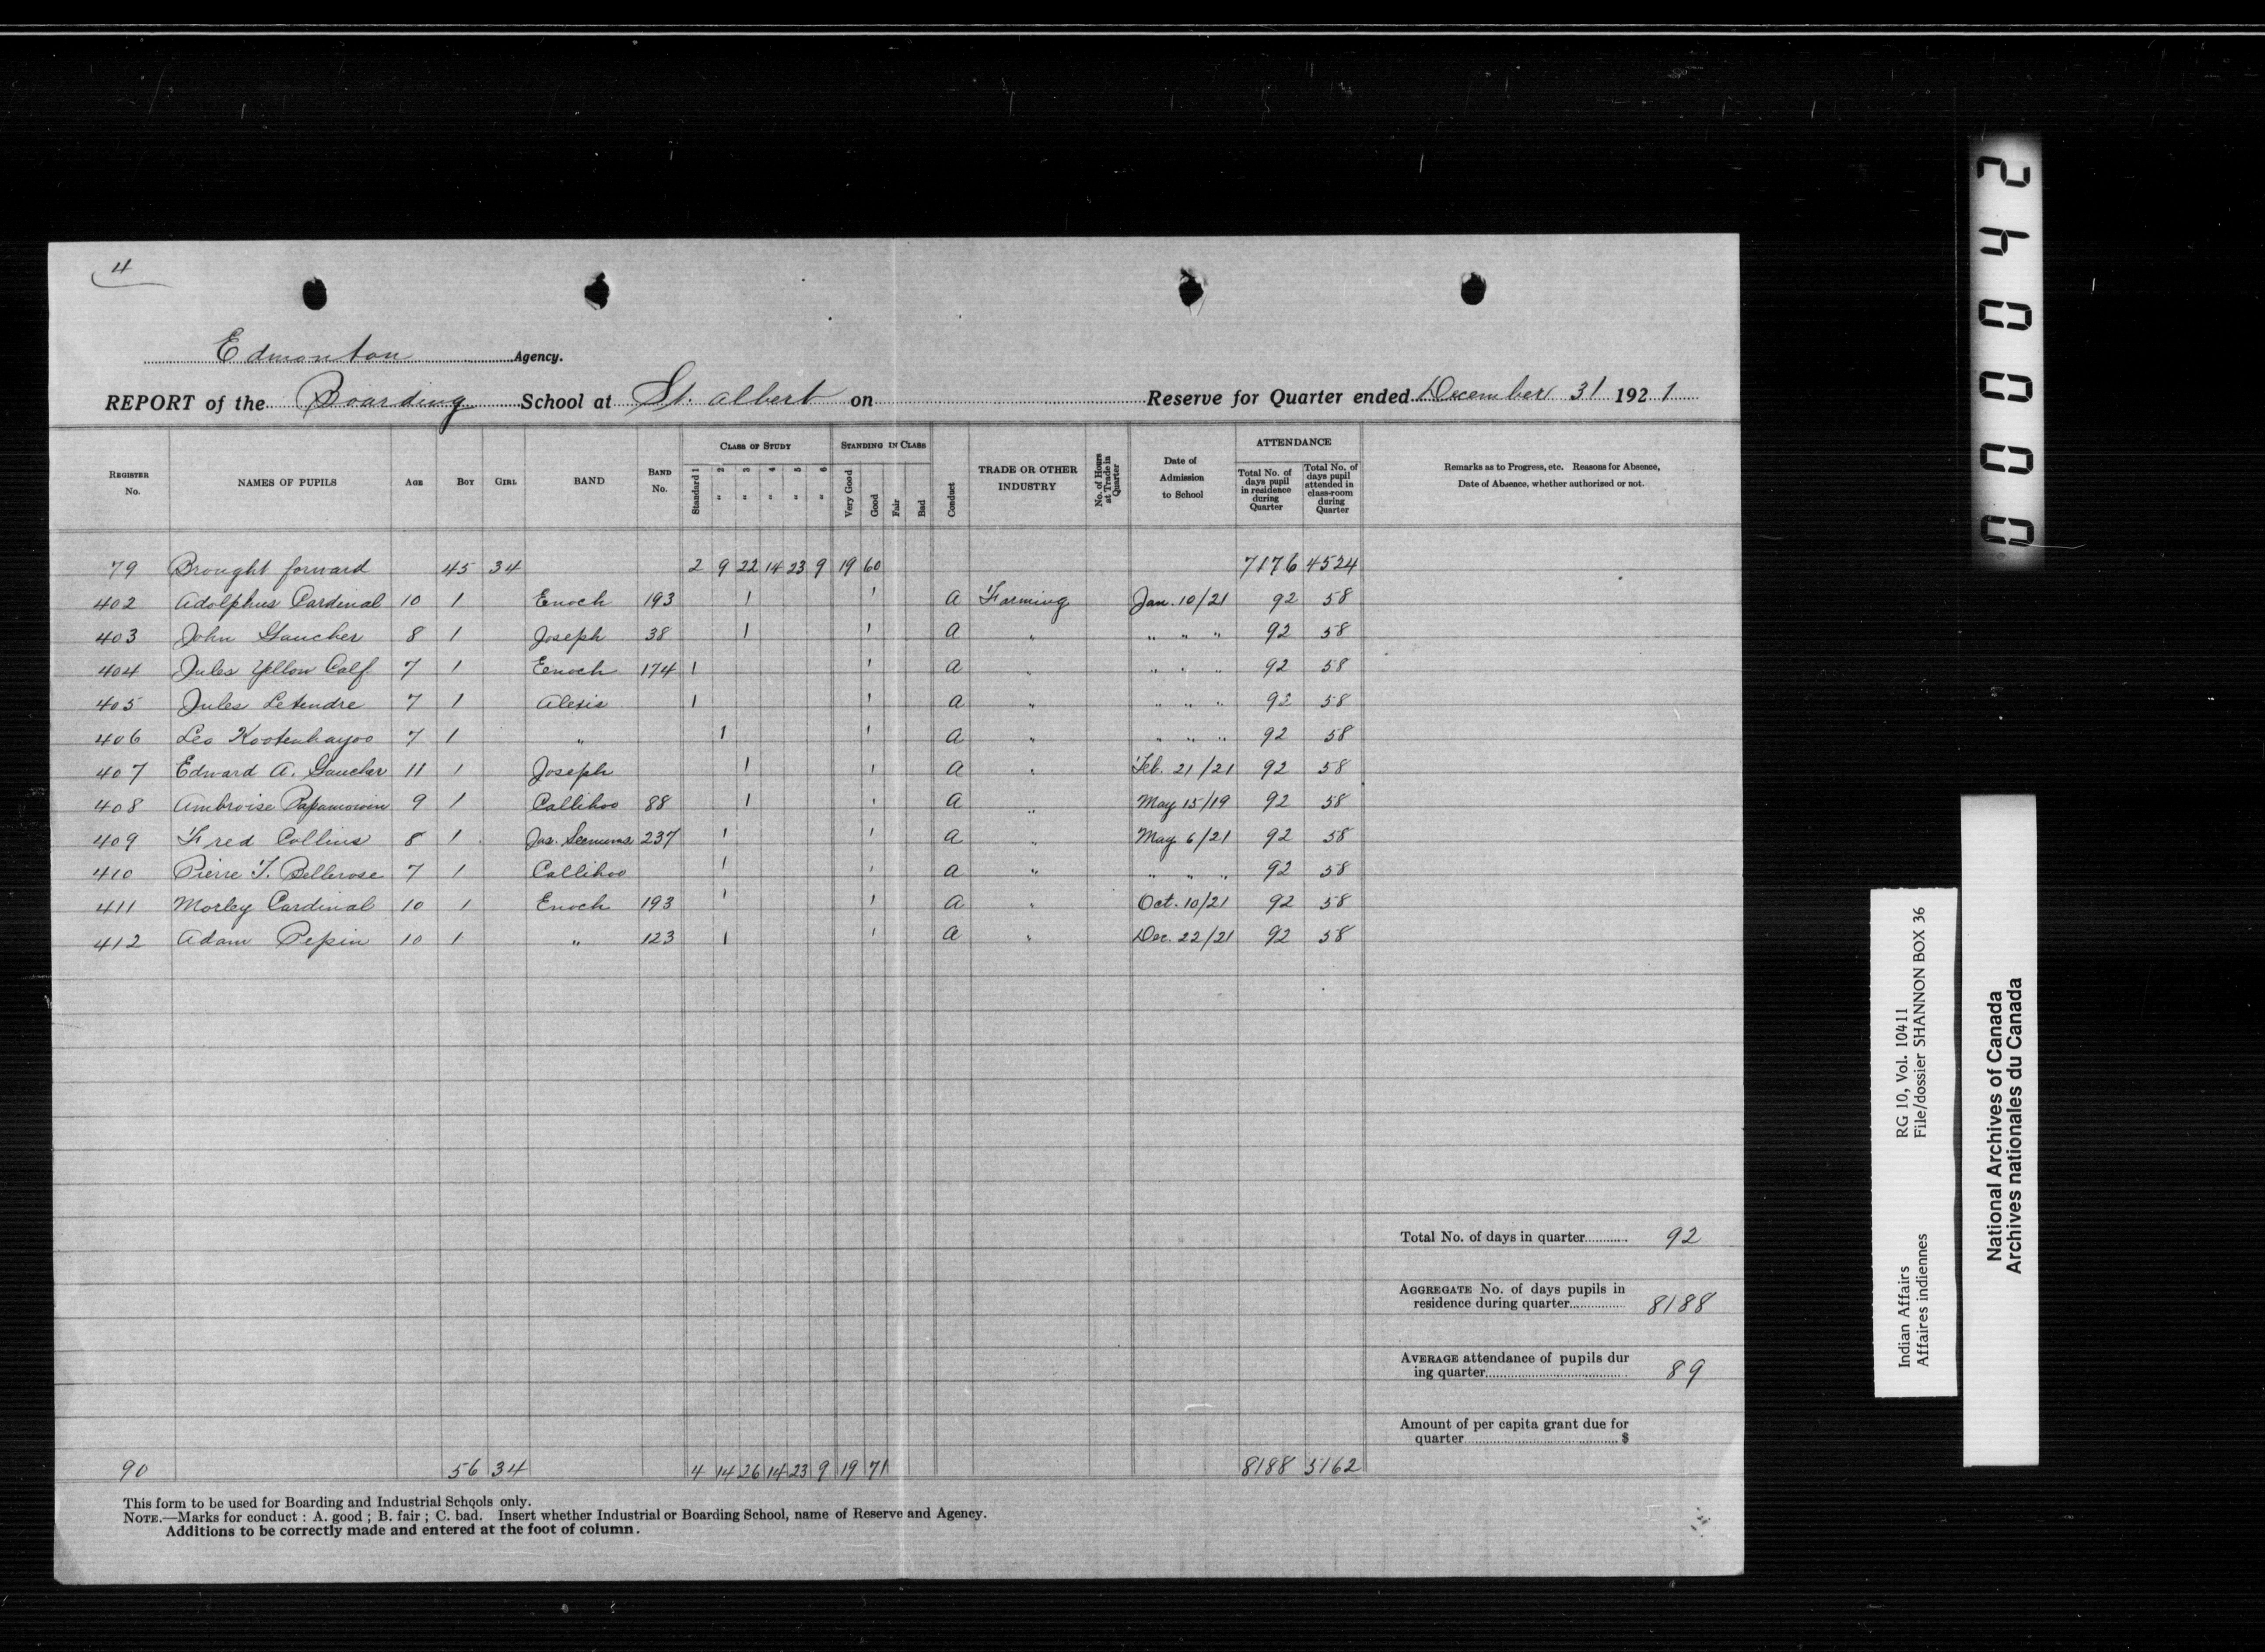 4
Edmonton Agency.
REPORT of the Boarding School at St. Albert on Reserve for Quarter ended December 31 1921
Register No. NAMES OF PUPILS Age Boy Girl BAND Band No. Class of Study Standard 1 " 2 " 3 " 4 " 5 " 6 Standing in Class Very Good Good Fair Bad Conduct TRADE OR OTHER INDUSTRY No. of Hours at Trade in Quarter Date of Admission to School ATTENDANCE Total No. of days pupil in residence during Quarter Total No. of days pupil attended in class-room during Quarter Remarks as to Progress, etc. Reasons for Absence, Date of Absence, whether authorized or not.
79 Brought forward 45 34 2 9 22 14 23 9 19 60 7176 4524
402 Adolphus Cardinal 10 1 Enoch 193 1 1 A Farming Jan. 10/21 92 58
403 John Gaucher 8 1 Joseph 38 1 1 A " " " " 92 58
404 Jules Yellow Calf 7 1 Enoch 174 1 1 A " " " " 92 58
405 Jules Letendre 7 1 Alexis 1 1 A " " " " 92 58
406 Leo Kootenhayoo 7 1 " 1 1 A " " " " 92 58
407 Edward A. Gaucher 11 1 Joseph 1 1 A " Feb. 21/21 92 58
408 Ambroise 9 1 Callihoo 88 1 1 A " May 15/19 92 58
409 Fred Collins 8 1 Jos. 237 1 1 A " May 6/21 92 58
410 Pierre T. Bellerose 7 1 Callihoo 1 1 A " " " " 92 58
411 Morley Cardinal 10 1 Enoch 193 1 1 A " Oct. 10/21 92 58
412 Adam Pepin 10 1 " 123 1 1 A " Dec. 22/21 92 58
Total No. of days in quarter 92
Aggregate No. of days pupils in residence during quarter 8188
Average attendance of pupils dur
ing quarter 89
Amount of per capita grant due for
quarter $
90 56 34 4 14 26 14 23 9 19 71 8188 5162
This form to be used for Boarding and Industrial Schools only.
Note.—Marks for conduct : A. good ; B. fair ; C. bad. Insert whether Industrial or Boarding School, name of Reserve and Agency.
Additions to be correctly made and entered at the foot of column.
000042
Indian Affairs RG 10, Vol. 10411
Affaires indiennes File/dossier SHANNON BOX 36
National Archives of Canada
Archives nationales du Canada